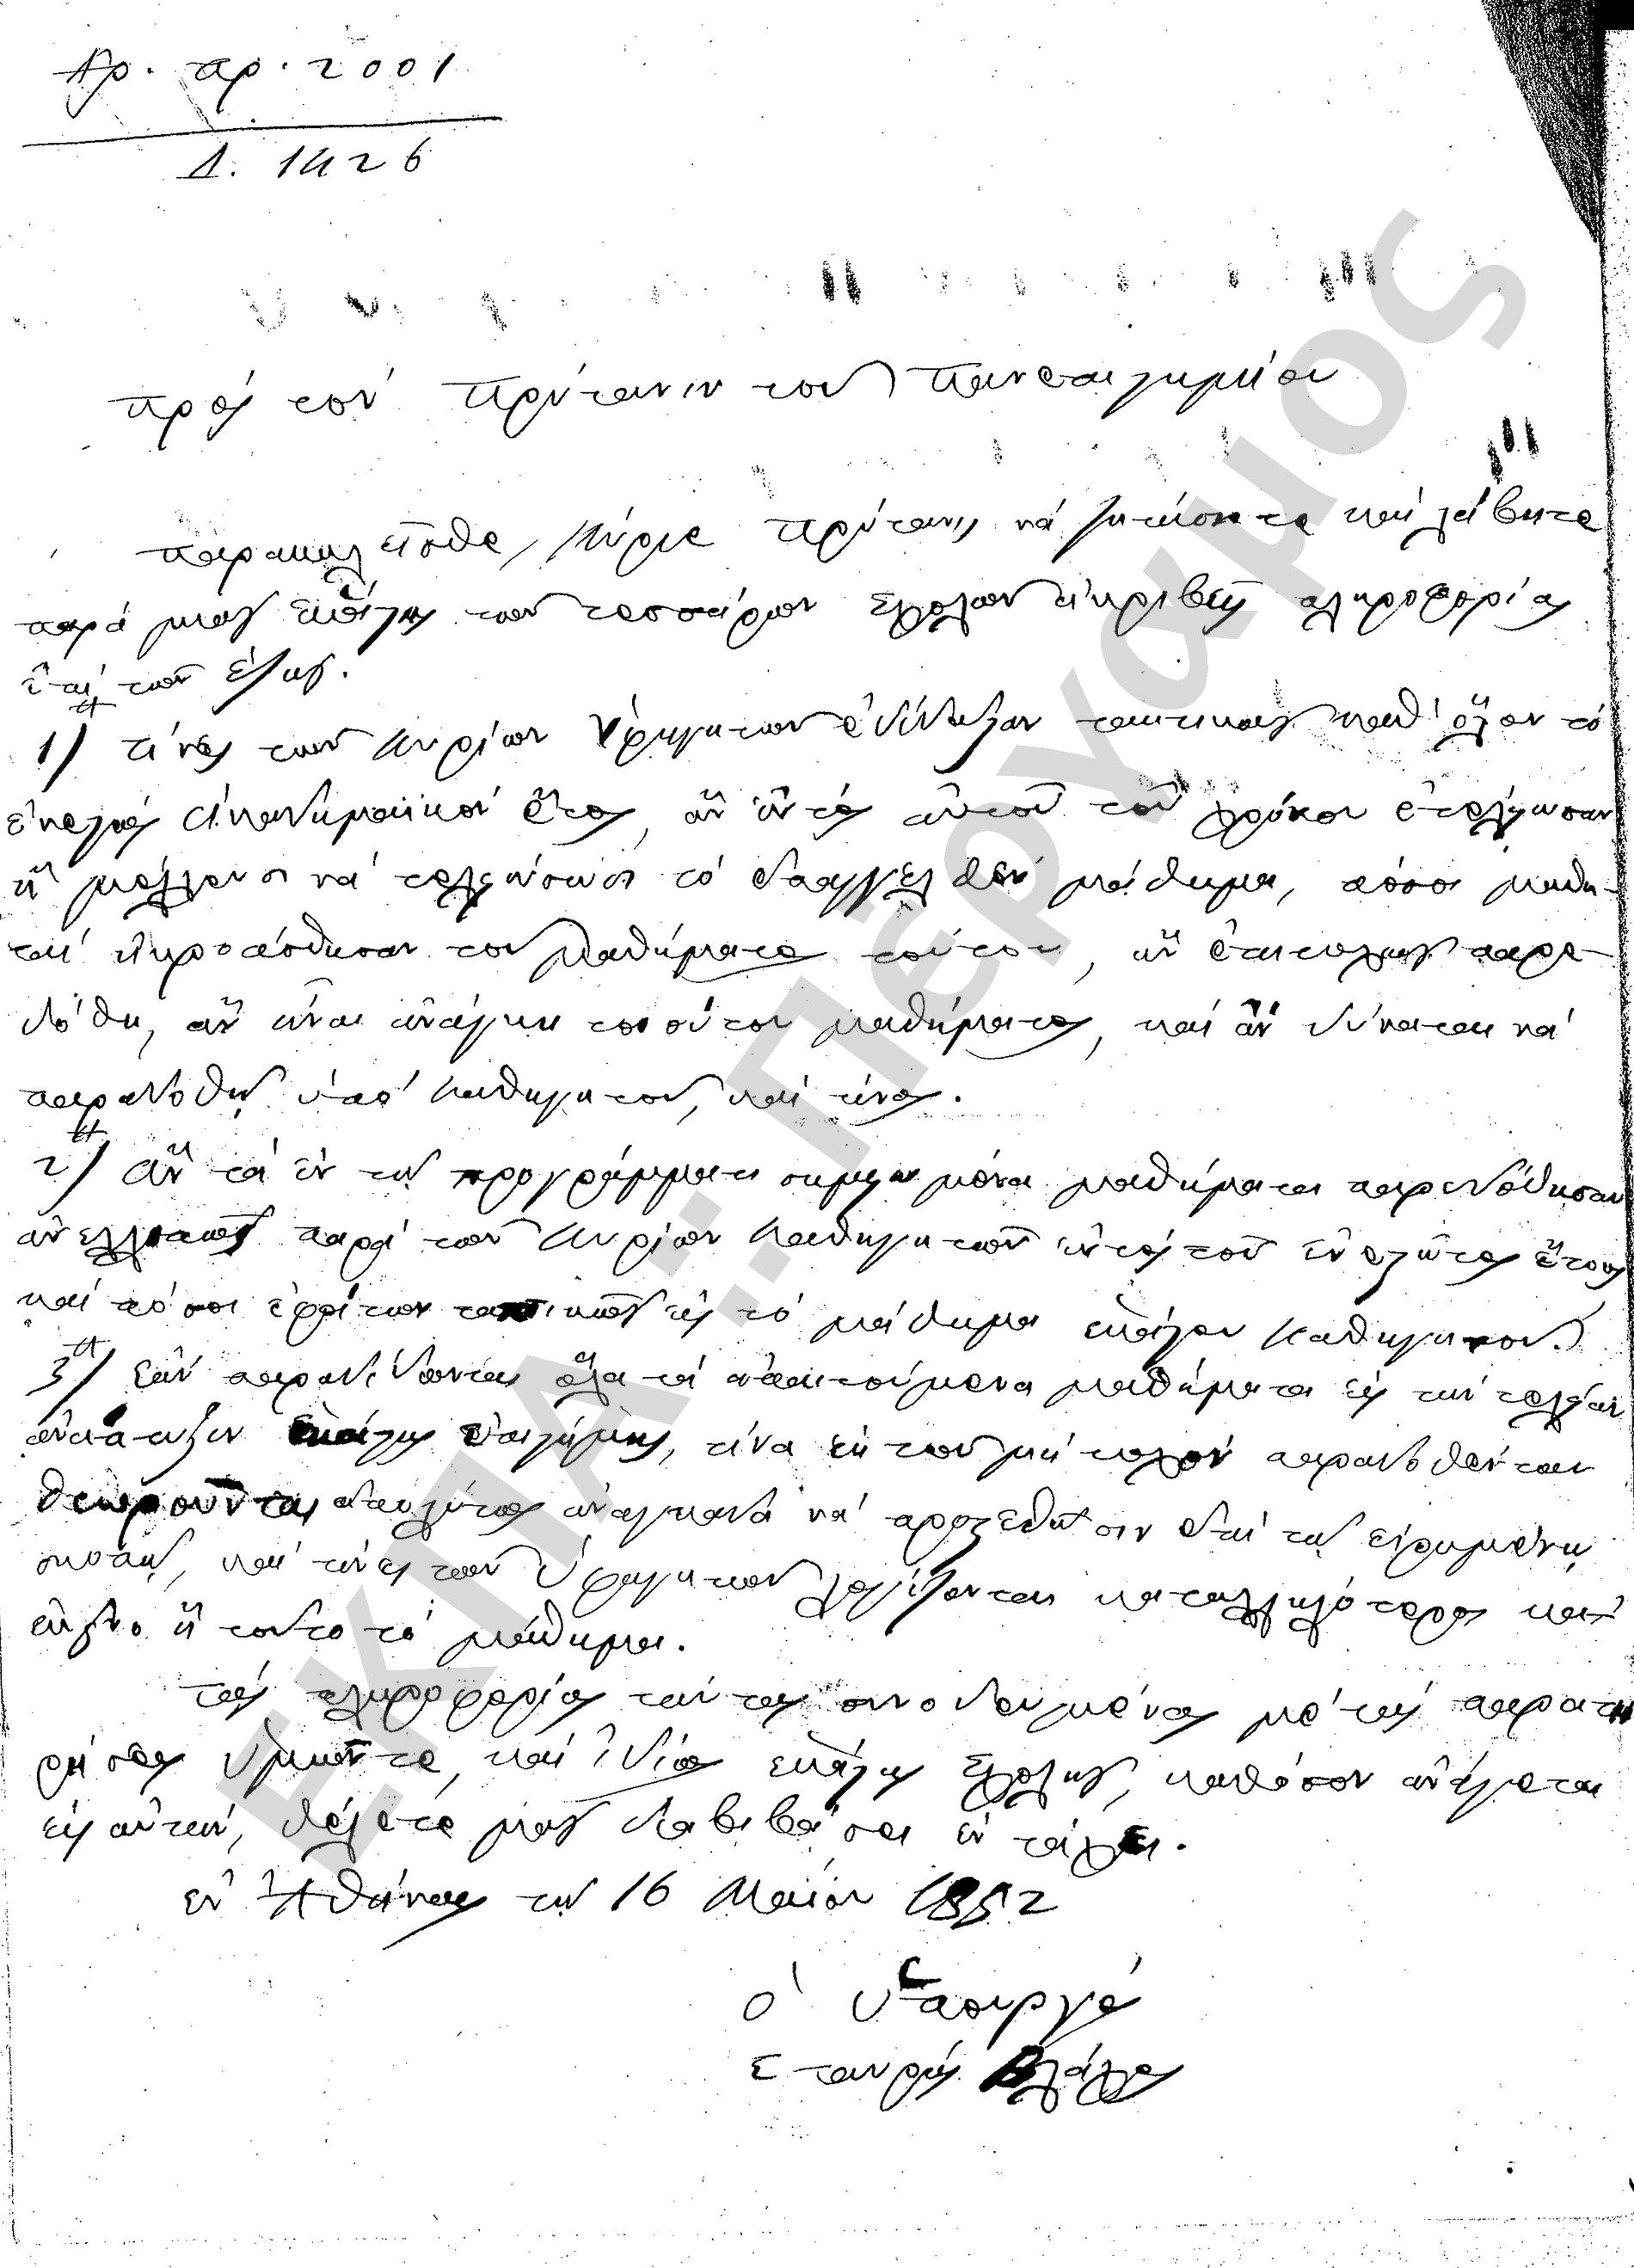 Αρ. πρ. 2001
Δ. 1426
Πρὸς τὸν Πρύτανιν τοῦ Πανεπιστημίου
Παρακαλεῖσθε, Κύριε Πρύτανι, νὰ ζητήσητε καὶ λάβητε
παρὰ μιᾶς ἑκάστης τῶν τεσσάρων Σχολῶν ἀκριβεῖς πληροφορίας
ἐπὶ τῶν ἑξῆς.
1) τίνες τῶν Κυρίων Ὑφηγητῶν ἐδίδαξαν τακτικῶς καθ' ὅλον τὸ
ἐνεστὼς ἀκαδημαϊκὸν ἔτος, ἂν ἐντὸς αὐτοῦ τοῦ χρόνου ἐτελείωσαν
ἢ μέλλουσι νὰ τελειώσωσι τὸ ἐπαγγελθὲν μάθημα, πόσοι μαθη-
ταὶ ἠκροάσθησαν τοῦ μαθήματος τούτου, ἂν ἐπιτυχῶς παρε-
δόθη, ἂν εἶναι ἀνάγκη τοιούτου μαθήματος, καὶ ἂν δύναται νὰ
παραδοθῇ ὑπὸ Καθηγητοῦ, καὶ τίνος.
2) Ἂν τὰ ἐν τῷ προγράμματι σημειωμένα μαθήματα παρεδόθησαν
ἀνελλιπῶς παρὰ τῶν Κυρίων Καθηγητῶν ἐντὸς τοῦ ἐνεστῶτος ἔτους
καὶ πόσοι ἐφοίτων τακτικῶς εἰς τὸ μάθημα ἑκάστου Καθηγητοῦ.
3) Ἐὰν παραδίδωνται ὅλα τὰ ἀπαιτούμενα μαθήματα εἰς τὴν τελείαν
ἀνάπτυξιν ἑκάστης ἐπιστήμης, τίνα ἐκ τῶν μὴ τυχὸν παραδοθέντων
θεωροῦνται ἀπολύτως ἀναγκαῖα νὰ προστεθῶσιν ἐπὶ τῷ εἰρημένῳ
σκοπῷ, καὶ τίνες τῶν Ὑφηγητῶν λογίζονται καταλληλότεροι κατ'
ἐκεῖνο ἢ τοῦτο τὸ μάθημα.
Τὰς πληροφορίας ταύτας συνοδευμένας μὲ τὰς παρατη
ρήσεις ὑμῶν τε, καὶ ἰδίας ἑκάστης Σχολῆς, καθόσον ἀνάγεται
εἰς αὐτήν, θέλετε μᾶς διαβιβάσει ἐν τάχει.
Ἐν Ἀθήναις τῇ 16 Μαΐου 1852
Ὁ Ὑπουργὸς
Σταυρὸς Βλάχος
ΕΚΠΑ:.Πέργαμος